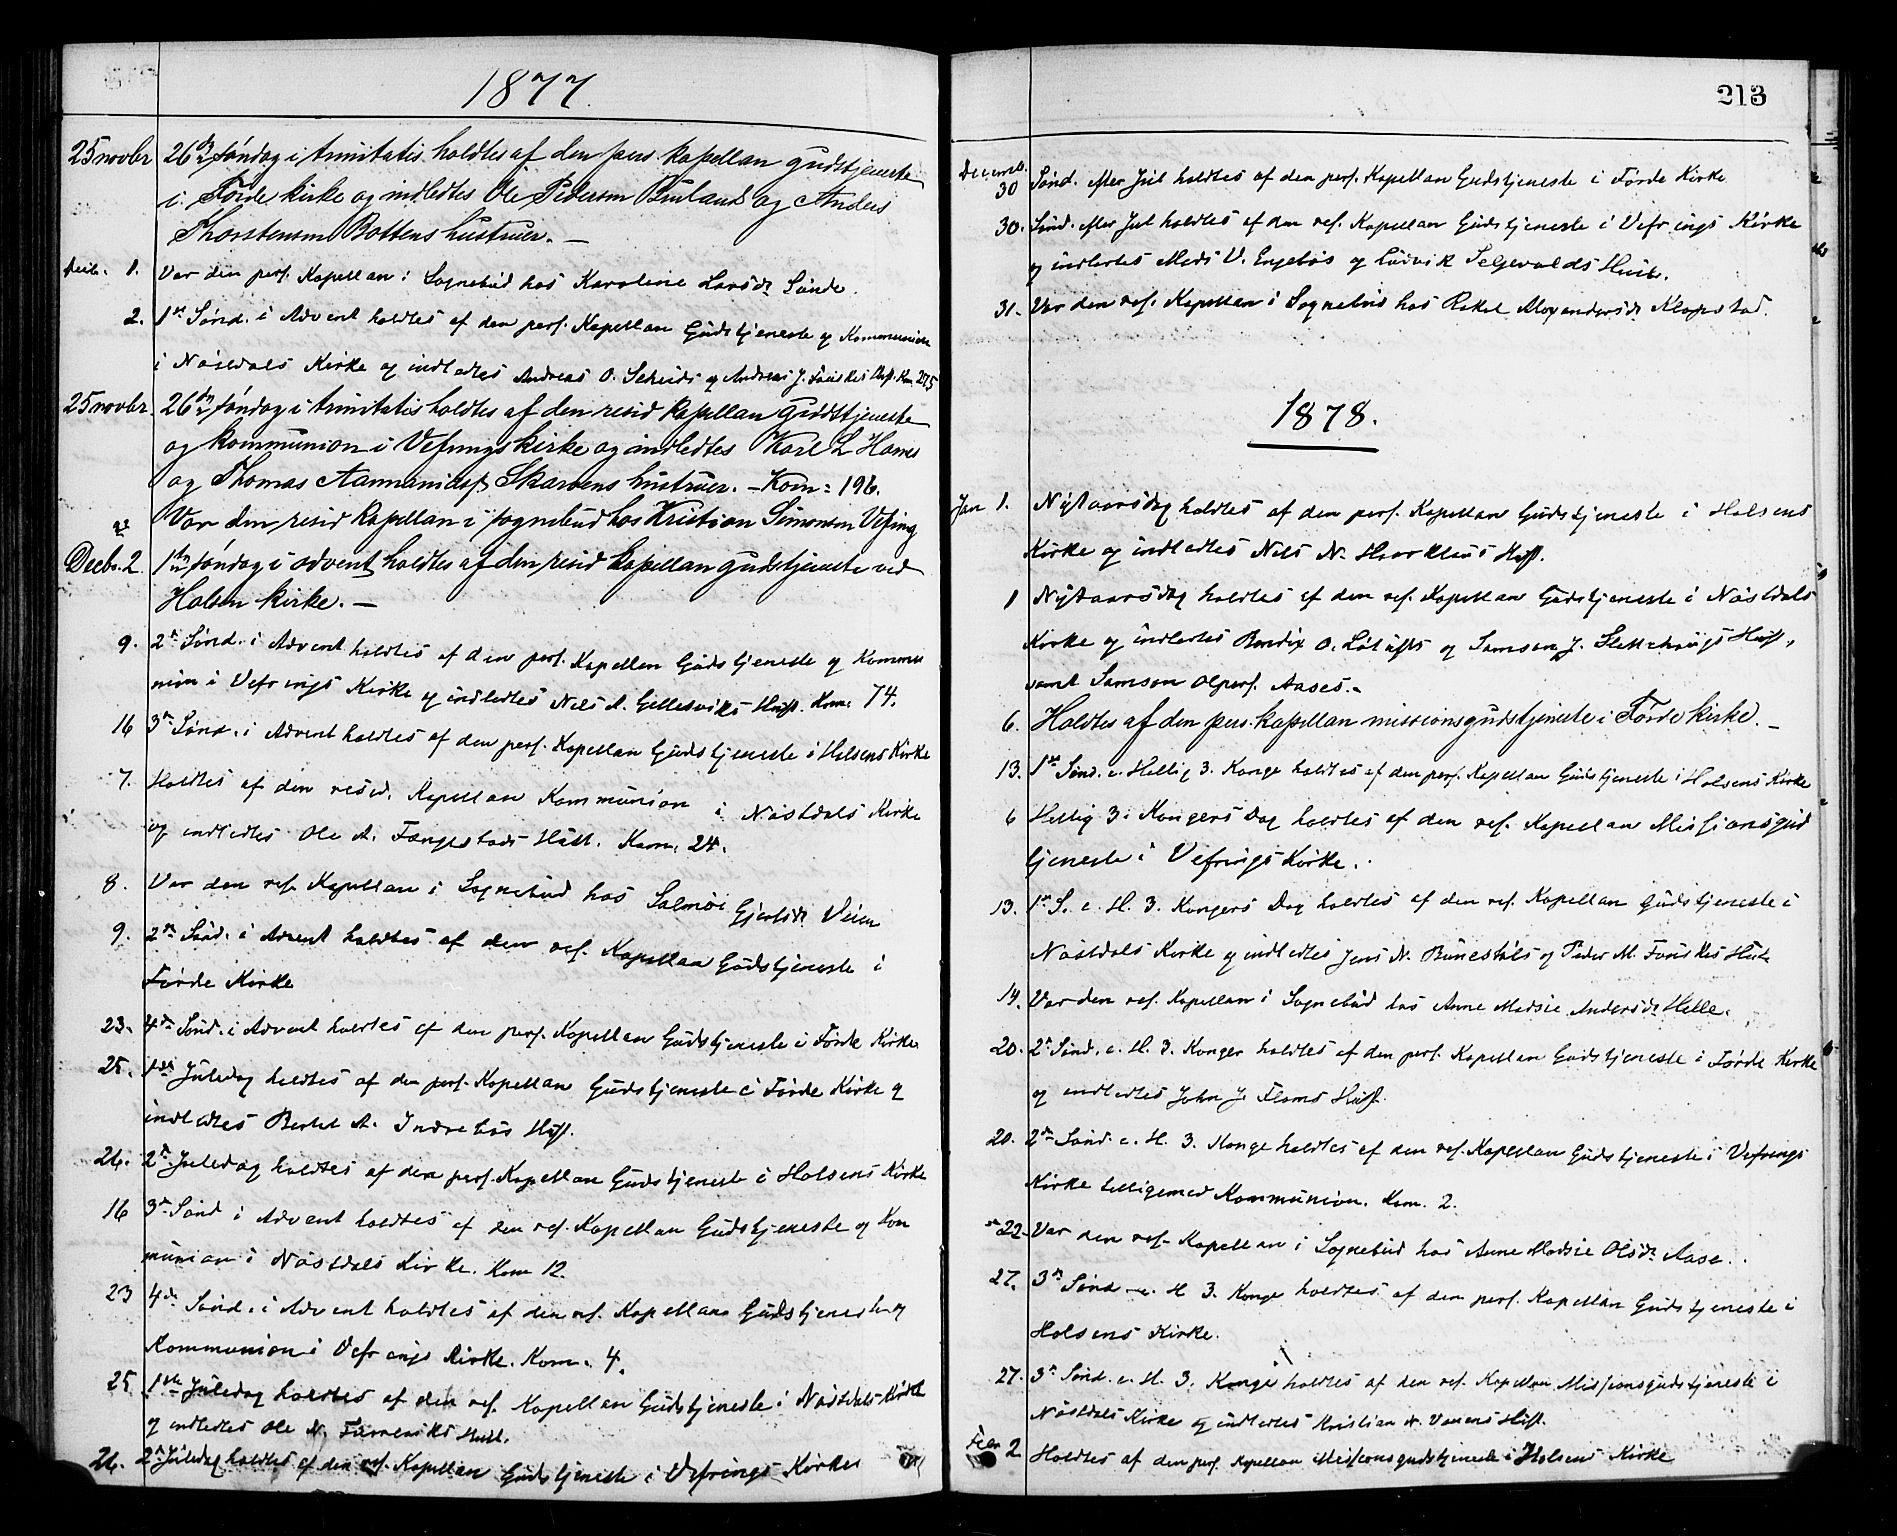 1877.
25 novbr 26de söndag i trinitatis holdtes af den pers. kapellan gudstjeneste
i Förde kirke og indledtes Ole Pederson Bruland og Anders
Thorstensen Bottens hustruer. —
Decb. 1. Var den pers. Kapellan i Sognebud hos Karoline Larsdr Sunde.
2. 1ste Sönd. i Advent holdtes af den pers. Kapellan Gudstjeneste og Kommunion
i Nöstdals Kirke og indledtes Andreas O. og Andreas J. Kom. 275
25 novbr 26de söndag i trinitatis holdtes af den resid kapellan gudstjeneste
og kommunion i Vefrings kirke og indledtes Karl L. Hornes
og Thomas Skarvens hustruer. — Kom: 196.
Var den resid kapellan i sognebud hos Kristian Simonsen Vefring
Decbr. 2. 1ste söndag i advent holdtes af den resid kapellan gudstjeneste ved
Holsen kirke. —
9. 2den Sönd. i Advent holdtes af den pers. Kapellan Gudstjeneste og Kommu
nion i Vefrings Kirke og indledtes Nils A. Gellesviks Hust. Kom. 74.
16 3die Sönd. i Advent holdtes af den pers. Kapellan Gudstjeneste i Holsens Kirke
7. Holdtes af den resid. Kapellan Kommunion i Nöstdals Kirke
og indledtes Ole A. Fangestads Hust. Kom. 24.
8. Var den res. Kapellan i Sognebud hos Salmöi Gjertsdr Veien
9. 2den Sönd. i Advent holdtes af den res. Kapellan Gudstjeneste i
Förde Kirke
23. 4de Sönd. i Advent holdtes af den pers. Kapellan Gudstjeneste i Förde Kirke.
25. 1ste Juledag holdtes af den pers. Kapellan Gudstjeneste i Förde Kirke og
indledtes Bertel A. Indrebös Hust.
26. 2den Juledag holdtes af den pers. Kapellan Gudstjeneste i Holsens Kirke
16 3die Sönd i Advent holdtes af den res. Kapellan Gudstjeneste og Kom
munion i Nöstdals Kirke. Kom 12.
23 4de Sönd. i Advent holdtes af den res. Kapellan Gudstjeneste og
Kommunion i Vefrings Kirke. Kom. 4.
25 1ste Juledag holdtes af den res. Kapellan Gudstjeneste i Nöstdals Kirke
og indledtes Ole N. Hust.
26. 2den Juledag holdtes af den res. Kapellan Gudstjeneste i Vefrings Kirke
213
Decemb.
30 Sönd. efter Jul holdtes af den pers. Kapellan Gudstjeneste i Förde Kirke
30. Sönd. efter Jul holdtes af den res. Kapellan Gudstjeneste i Vefrings Kirke
og indledtes Mads V. Engebös og Ludvik Hust.
31. Var den res. Kapellan i Sognebud hos Rakel Alexandersdr Klopstad.
1878.
Jan 1. Nytaarsdag holdtes af den pers. Kapellan Gudstjeneste i Holsens
Kirke og indledtes Nils N. Haarklaus Hust.
1 Nytaarsdag holdtes af den res. Kapellan Gudstjeneste i Nöstdals
Kirke og indledtes Bendix O. og Samson J. Slettehaugs Hust.,
samt Samson Aases. —
6. Holdtes af den pers. kapellan missionsgudstjeneste i Förde kirke. —
13. 1ste Sönd. e. Hellig 3. Konge holdtes af den pers. Kapellan Gudstjeneste i Holsens Kirke
6 Hellig 3. Kongers Dag holdtes af den res. Kapellan Missionsgud
tjeneste i Vefrings Kirke.
13. 1ste S. e. H. 3. Kongers Dag holdtes af den res. Kapellan Gudstjeneste i
Nöstdals Kirke og indledtes Jens N. og Peder M. Hust
14. Var den res. Kapellan i Sognebud hos Anne Madsie Andersdr Helle.
20. 2den Sönd. e. H. 3. Konger holdtes af den pers. Kapellan Gudstjeneste i Förde Kirke
og indledtes John J. Flams Hust.
20. 2den Sönd. e. H. 3. Konge holdtes af den res. Kapellan Gudstjeneste i Vefrings
Kirke tilligemed Kommunion. Kom. 2.
22. Var den res. Kapellan i Sognebud hos Anne Madsie Olsdr Aase.
27. 3die Sönd e. H 3. Konge holdtes af den pers. Kapellan Gudstjeneste i
Holsens Kirke.
27. 3die Sönd. e. H. 3. Konge holdtes af den res. Kapellan Missionsgudstjeneste i
Nöstdals Kirke og indledtes Kristian A. Hust.
Febr 2 Holdtes af den pers. Kapellan Missionsgudstjeneste i Holsens Kirke